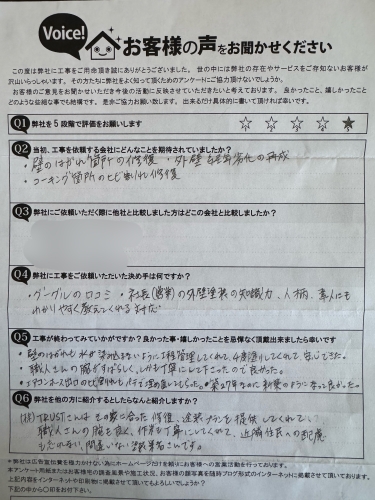 Voice!
お客様の声をお聞かせください
この度は弊社に工事をご用命頂き誠にありがとうございました。世の中には弊社の存在やサービスをご存知ないお客様が
沢山いらっしゃいます。その方たちに弊社をよく知って頂くためのアンケートにご協力頂けないでしょうか。
お客様のご意見をお聞かせいただき今後の活動に反映させていただきたいと考えております。良かったこと、嬉しかったこと
どのような些細な事でも結構です。是非ご協力お願い致します。出来るだけ具体的に書いて頂ければ幸いです。
Q1 弊社を5段階で評価をお願いします ☆ ☆ ☆ ☆ ★
Q2 当初、工事を依頼する会社にどんなことを期待されていましたか?
・壁のはがれ箇所の修復 ・外壁
・コーキング箇所のヒビ割れ修復
Q3 弊社にご依頼いただく際に他社と比較しました方はどこの会社と比較しましたか?
Q4 弊社に工事をご依頼いただいた決め手は何ですか?
・グーグルの口コミ ・社長(営業)の外壁塗装の知識力、人柄、素人にも
わかりやすく教えてくれる対応
Q5 工事が終わってみていかがですか?良かった事・嬉しかったことを忌憚なく頂戴出来ましたら幸いです
・壁のはがれも水が染み込まないように工程管理してくれて、4層塗りしてくれて、安心できた。
・職人さんの腕がすばらしく、しかも丁寧にして下さったので良かった。
Q6 他の方に弊社を紹介するとしたらなんと紹介しますか?
(株)TRUSTさんはその家に合った修復、塗装プランを提供してくれて、
職人さんの腕も良く、作業も丁寧にしてくれて、近隣住民への配慮
も 間違いない業者さんです。
*弊社は広告宣伝費を極力かけない為にホームページDTを頼りにお客様への営業活動を行っております。
本アンケート用紙またはお客様宅の調査風景や施工状況、お客様の顔写真を随時ブログ形式のインターネットに掲載させて頂いております。
上記内容をインターネットや印刷物に掲載させて頂いてもよろしいでしょうか?
下記の中から〇印をお付下さい。